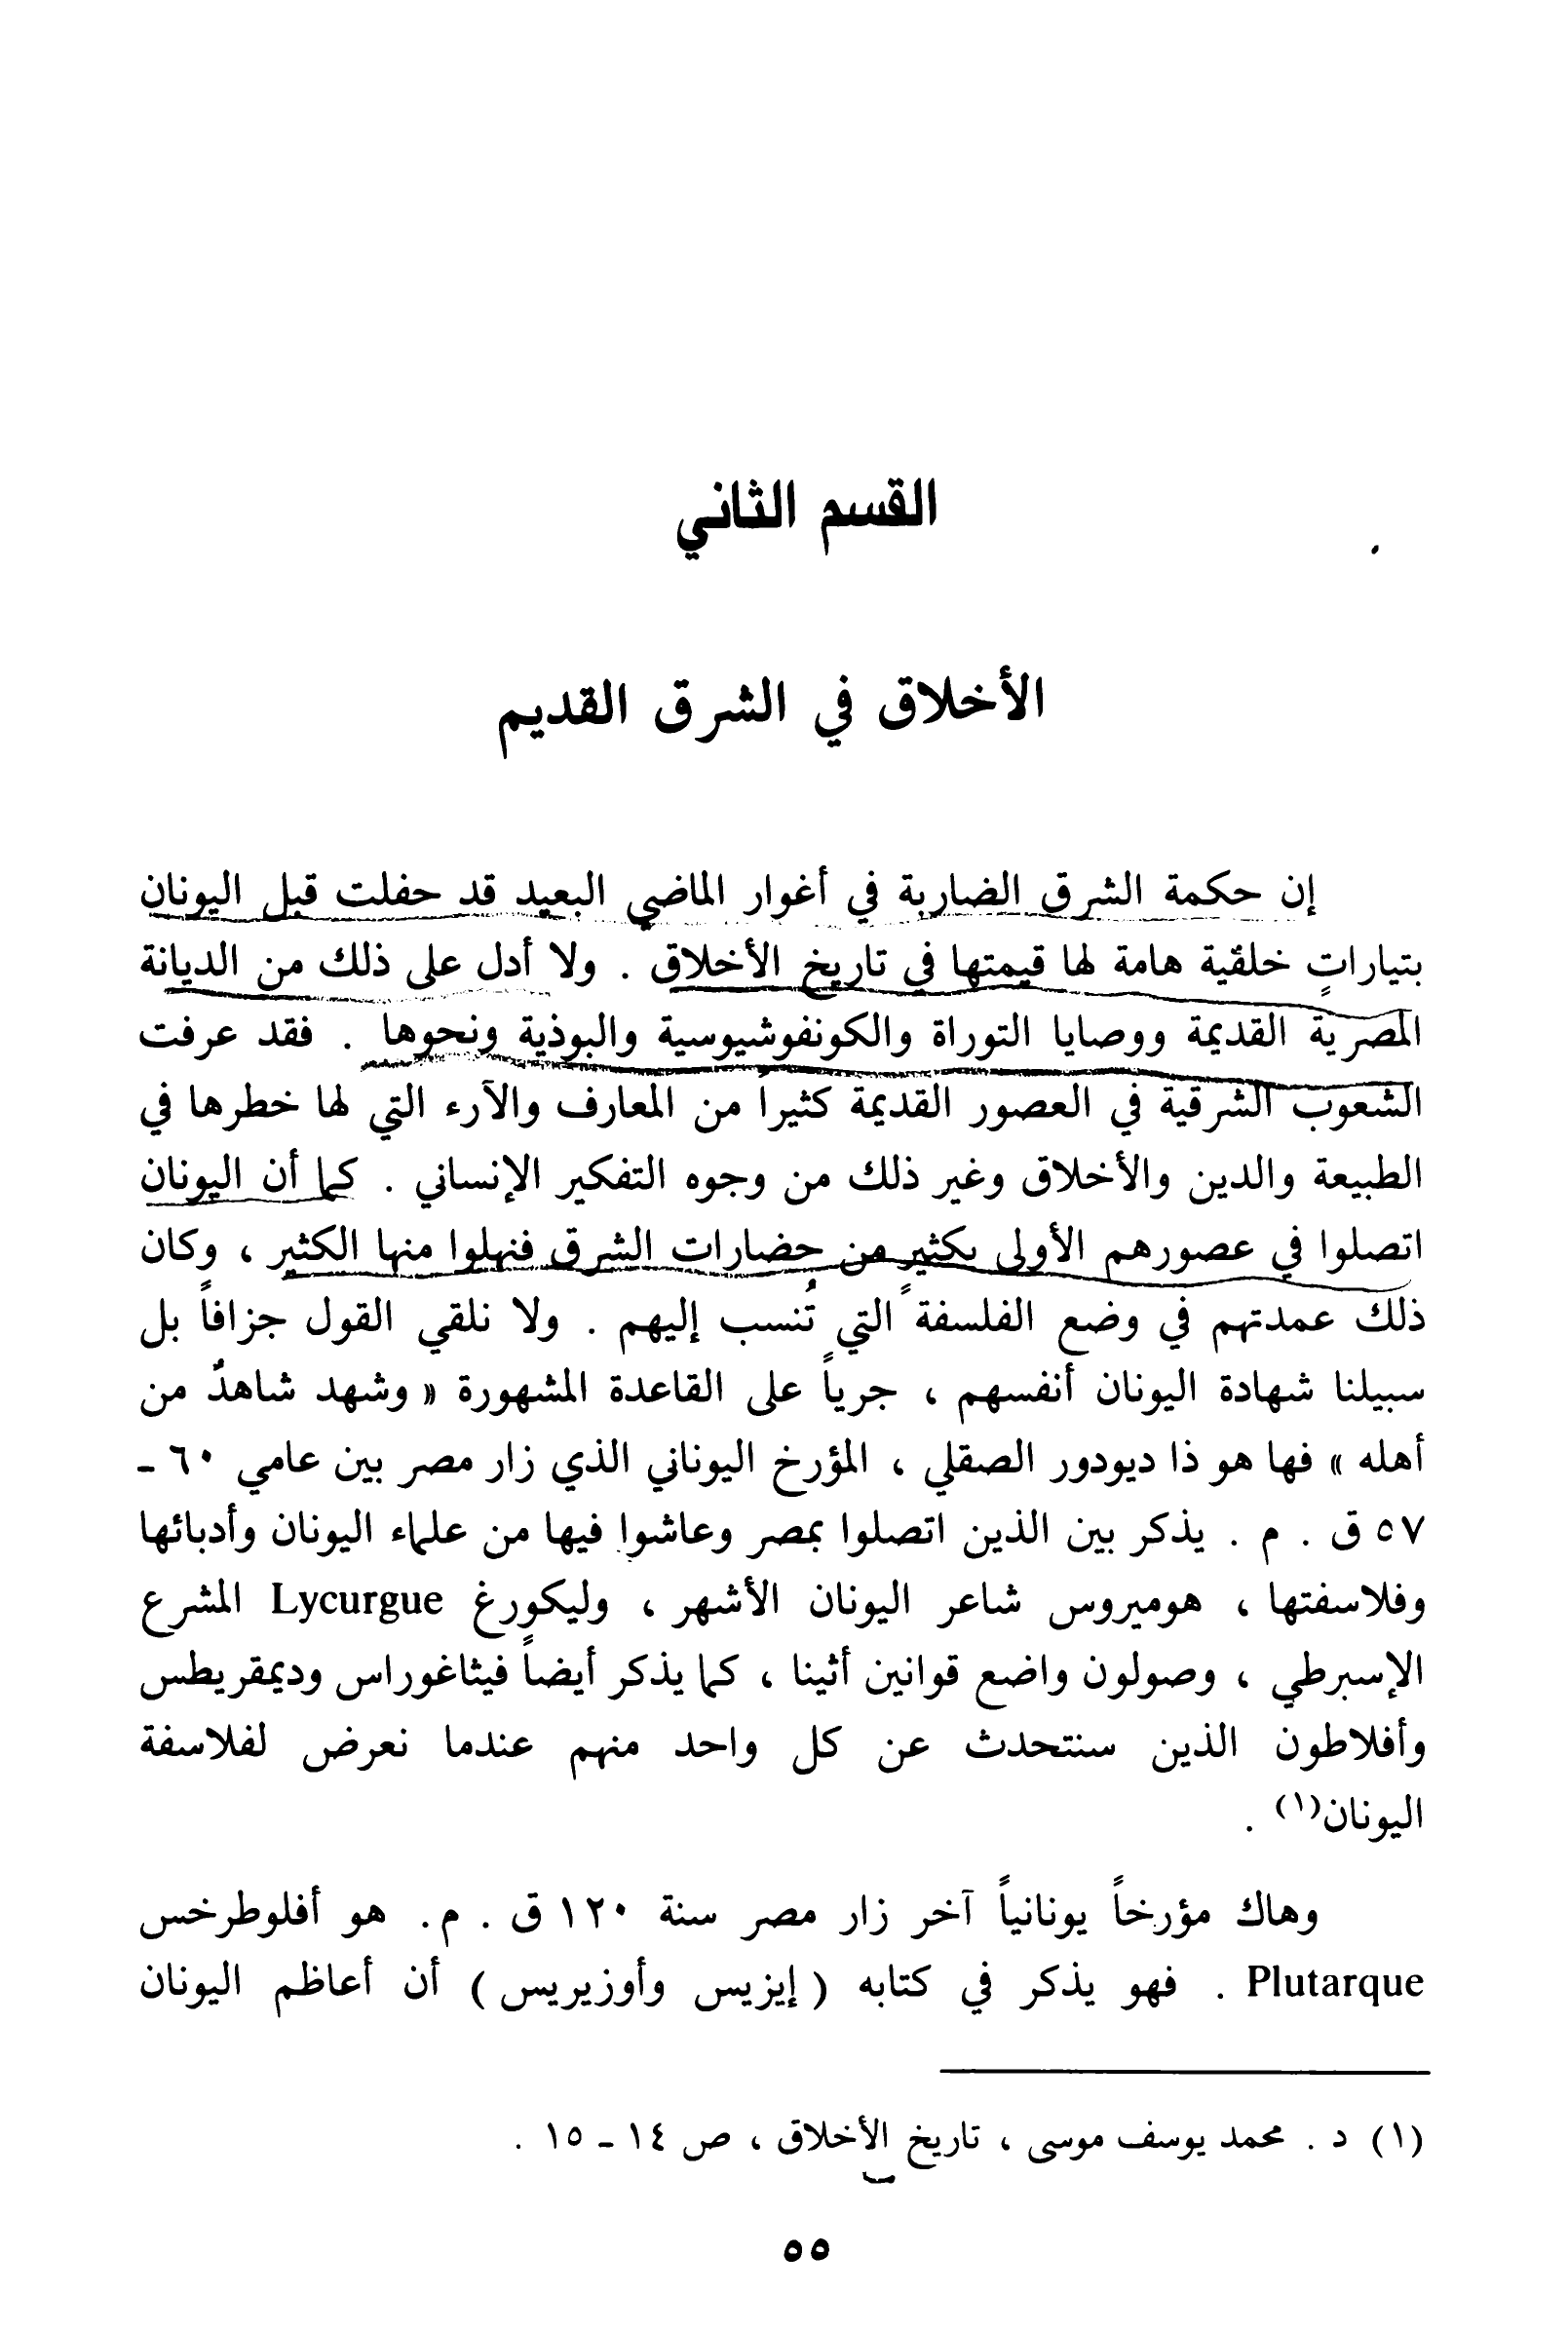 القسم الثاني
الأخلاق في الشرق القديم
إن حكمة الشرق الضاربة في أغوار الماضي البعيد قد حفلت قبل اليونان
بتياراتٍ خلقية هامة لها قيمتها في تاريخ الأخلاق . ولا أدل على ذلك من الديانة
المصرية القديمة ووصايا التوراة والكونفوشيوسية والبوذية ونحوها . فقد عرفت
الشعوب الشرقية في العصور القديمة كثيراً من المعارف والآرء التي لها خطرها في
الطبيعة والدين والأخلاق وغير ذلك من وجوه التفكير الإنساني . كما أن اليونان
اتصلوا في عصورهم الأولى بكثيرٍ من حضارات الشرق فنهلوا منها الكثير ، وكان
ذلك عمدتهم في وضع الفلسفة التي تُنسب إليهم . ولا نلقي القول جزافاً بل
سبيلنا شهادة اليونان أنفسهم ، جرياً على القاعدة المشهورة « وشهد شاهدٌ من
أهله » فها هو ذا ديودور الصقلي ، المؤرخ اليوناني الذي زار مصر بين عامي ٦٠ ـ
٥٧ ق . م . يذكر بين الذين اتصلوا بمصر وعاشوا فيها من علماء اليونان وأدبائها
وفلاسفتها ، هوميروس شاعر اليونان الأشهر ، وليكورغ Lycurgue المشرع
الإسبرطي ، وصولون واضع قوانين أثينا ، كما يذكر أيضاً فيثاغوراس وديمقريطس
وأفلاطون الذين سنتحدث عن كل واحد منهم عندما نعرض لفلاسفة
اليونان(١) .
وهاك مؤرخاً يونانياً آخر زار مصر سنة ١٢٠ ق . م . هو أفلوطرخس
Plutarque . فهو يذكر في كتابه ( إيزيس وأوزيريس ) أن أعاظم اليونان
(١) د . محمد يوسف موسى ، تاريخ الأخلاق ، ص ١٤ ـ ١٥ .
٥٥